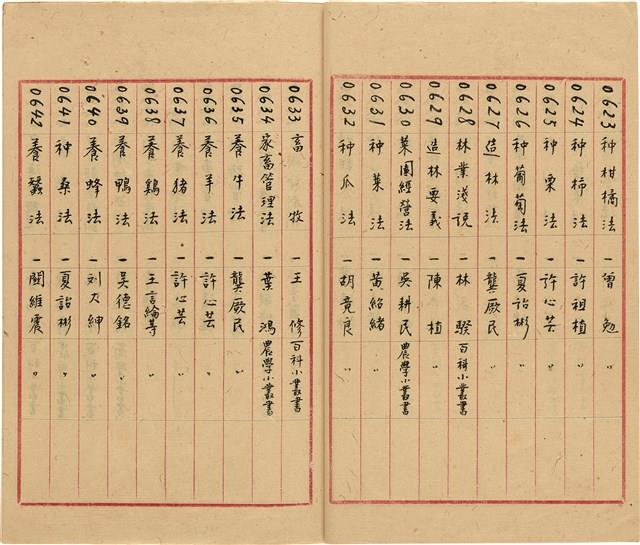 0623 种柑橘法 一 曾勉 〃
0624 种柿法 一 許祖植 〃
0625 种栗法 一 許心芸 〃
0626 种葡萄法 一 夏詒彬 〃
0627 造林法 一 龔厥民 〃
0628 林業淺説 一 林騤 百科小叢書
0629 造林要義 一 陳植 〃
0630 菜園經營法 一 吳耕民 農學小叢書
0631 种菜法 一 黃紹緒 〃
0632 种瓜法 一 胡竟良 〃
0633 畜牧 一 王修 百科小叢書
0634 家畜管理法 一 葉鴻 農學小叢書
0635 養牛法 一 龔厥民 〃
0636 養羊法 一 許心芸 〃
0637 養豬法 一 許心芸 〃
0638 養鷄法 一 王言綸等 〃
0639 養鴨法 一 吳德銘 〃
0640 養蜂法 一 刘大紳 〃
0641 种桑法 一 夏詒彬 〃
0642 養蠶法 一 關維震 〃